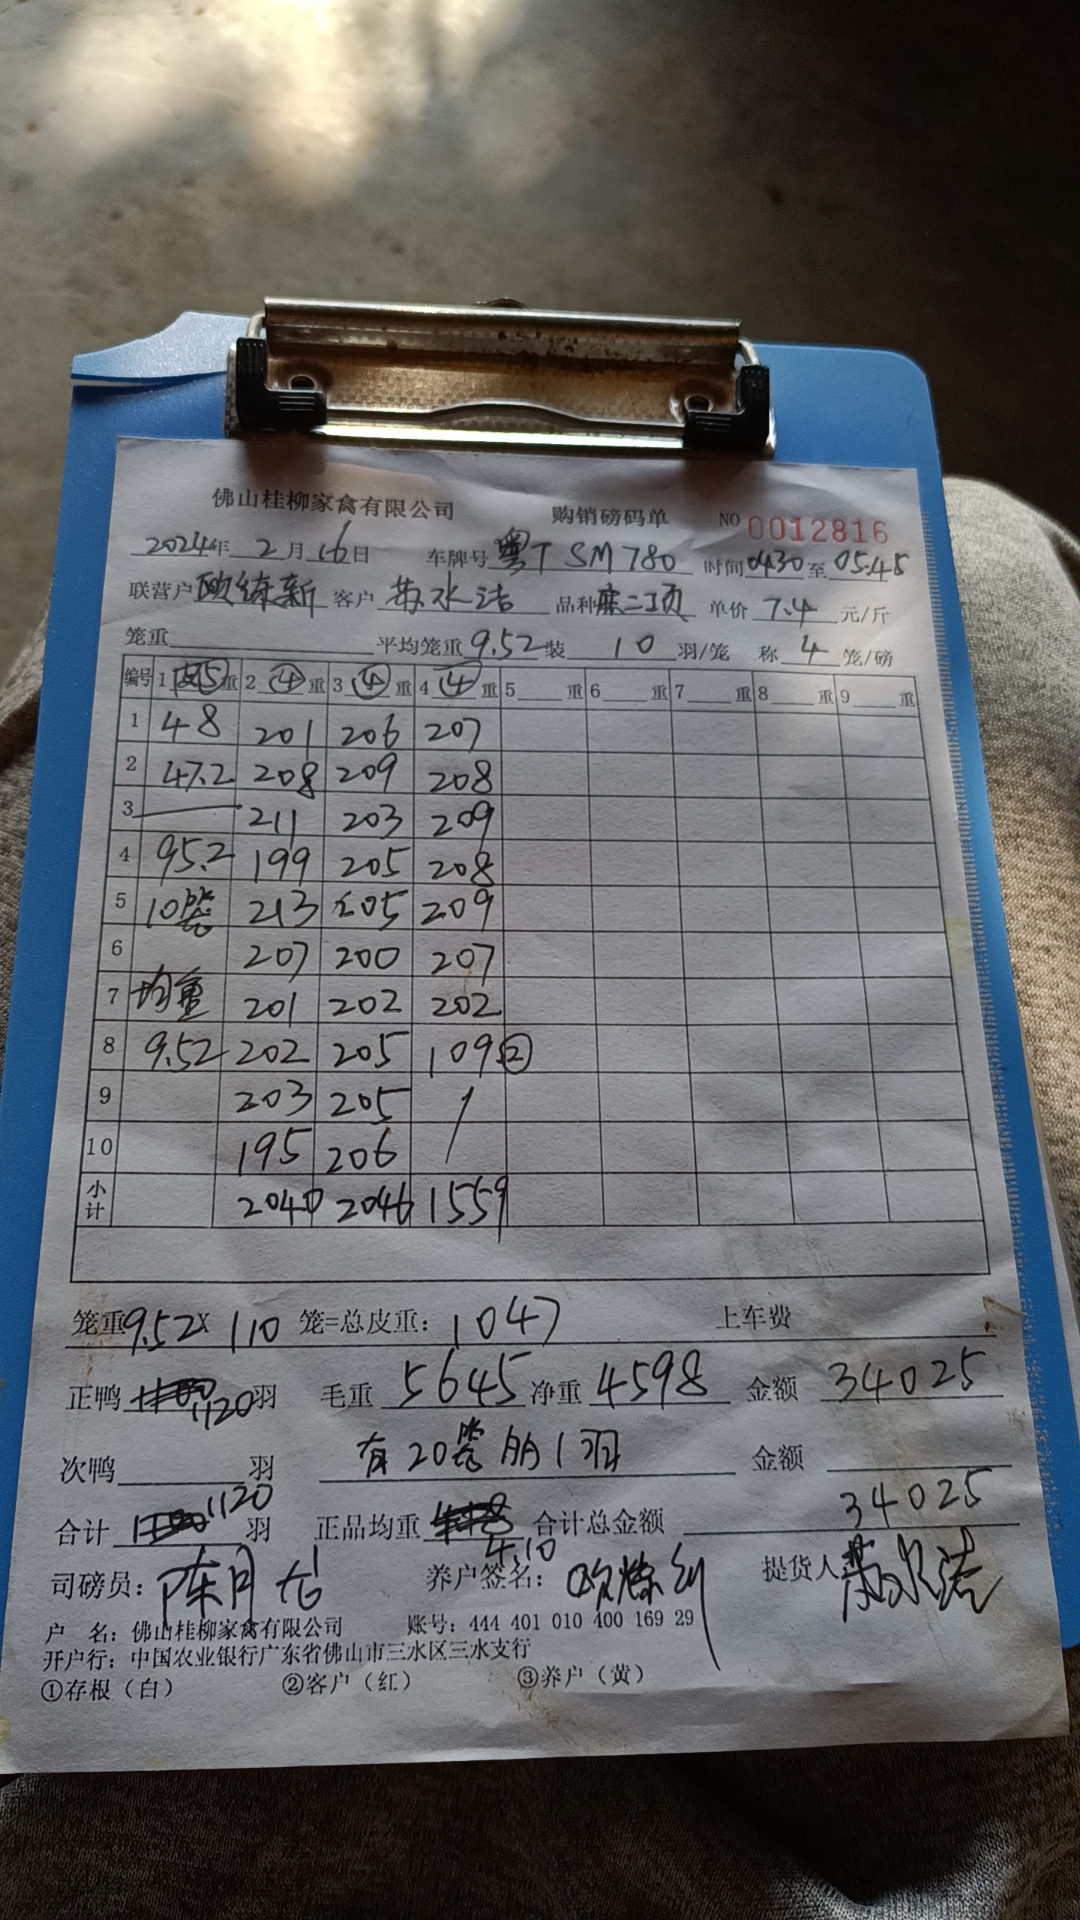 佛山桂柳家禽有限公司 购销磅码单 NO 0012816
2024年 2月16日 车牌号 粤T SM780 时间 0430 至 05:45
联营户 欧练新 客户 苏水洁 品种 二顶 单价 7.4 元/斤
笼重 平均笼重 9.52 装 10 羽/笼 称 4 笼/磅
编号 1 5 重 2 ④ 重 3 ④ 重 4 ④ 重 5 重 6 重 7 重 8 重 9 重
1 48 201 206 207
2 47.2 208 209 208
3 — 211 203 209
4 95.2 199 205 208
5 10笼 213 205 209
6 207 200 207
7 均重 201 202 202
8 9.52 202 205 109 ②
9 203 205 /
10 195 206
小计 2040 2046 1559
笼重 9.52 X 110 笼=总皮重: 1047 上车费
正鸭 1120 羽 毛重 5645 净重 4598 金额 34025
次鸭 羽 有20笼 1羽 金额
合计 1120 羽 正品均重 4.10 合计总金额 34025
司磅员: 陈月 养户签名: 欧练 提货人 苏水洁
户 名: 佛山桂柳家禽有限公司 账号: 444 401 010 400 169 29
开户行: 中国农业银行广东省佛山市三水区三水支行
①存根（白） ②客户（红） ③养户（黄）